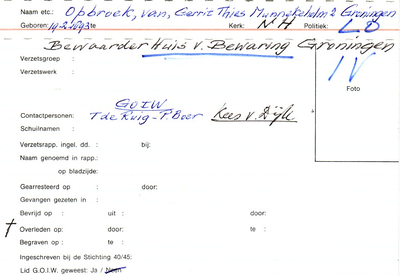 Naam etc.: Opbroek, van, Gerrit Thies Munnekeholm 2 Groningen
Geboren: 14-2-1893 te Kerk: NH Politiek: LB
Bewaarder Huis v. Bewaring Groningen
Verzetsgroep :
Verzetswerk : IV
Foto
GOIW
Contactpersonen: T de Ruig - P. Boer Kees v. Dijk
Schuilnamen :
Verzetsrapp. ingel. dd. : bij:
Naam genoemd in rapp.:
op bladzijde:
Gearresteerd op : door:
Gevangen gezeten in :
Bevrijd op : uit : door:
† Overleden op: door: te :
Begraven op : te :
Ingeschreven bij de Stichting 40/45:
Lid G.O.I.W. geweest: Ja / Neen